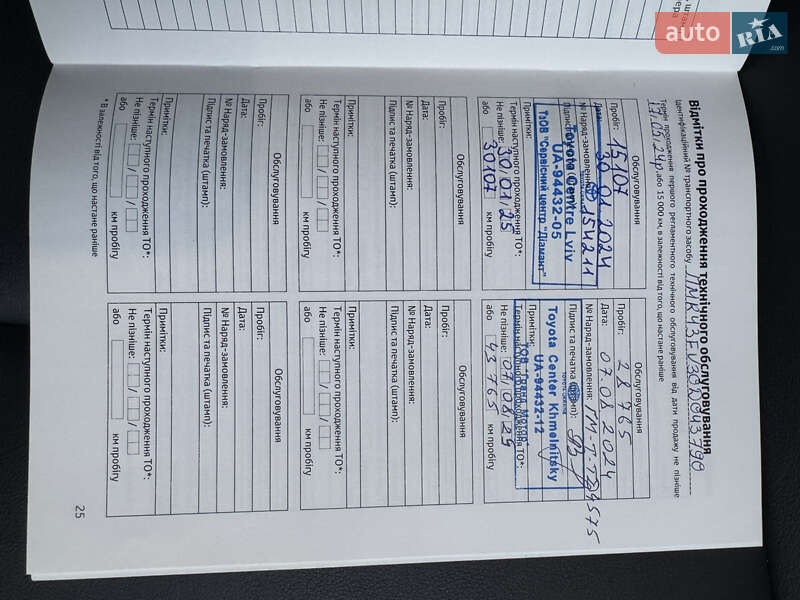 auto RIA.com
Відмітки про проходження технічного обслуговування
Ідентифікаційний № транспортного засобу
Термін проходження першого регламентного технічного обслуговування від дати продажу не пізніше
11.09.24р, або 15 000 км, в залежності від того, що настане раніше
Обслуговування
Пробіг: 15107
Дата: 30 01 2024
№ Наряд-замовлення: 154211
Toyota Centre Lviv
UA-94432-05
ТзОВ "Сервісний центр "Діамант"
Термін наступного проходження ТО*:
Не пізніше: 30/01/25
або 30107 км пробігу
Обслуговування
Пробіг: 28765
Дата: 07.08 2024
№ Наряд-замовлення:
Підпис та печатка
Toyota Center Khmelnitsky
UA-94432-12
Примітки:
ТОВ "Гранд Мотор"
Термін наступного проходження ТО*:
Не пізніше: 07/08/25
або 43765 км пробігу
Обслуговування
Пробіг:
Дата:
№ Наряд-замовлення:
Підпис та печатка (штамп):
Примітки:
Термін наступного проходження ТО*:
Не пізніше:
або км пробігу
Обслуговування
Пробіг:
Дата:
№ Наряд-замовлення:
Підпис та печатка (штамп):
Примітки:
Термін наступного проходження ТО*:
Не пізніше:
або км пробігу
Обслуговування
Пробіг:
Дата:
№ Наряд-замовлення:
Підпис та печатка (штамп):
Примітки:
Термін наступного проходження ТО*:
Не пізніше:
або км пробігу
Обслуговування
Пробіг:
Дата:
№ Наряд-замовлення:
Підпис та печатка (штамп):
Примітки:
Термін наступного проходження ТО*:
Не пізніше:
або км пробігу
* В залежності від того, що настане раніше
25